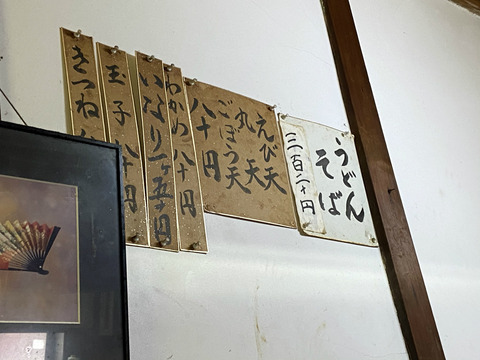 うどん
そば
三百二十円
えび天
丸天
ごぼう天
八十円
わかめ 八十円
いなり一ヶ五十円
玉子 八十円
きつね